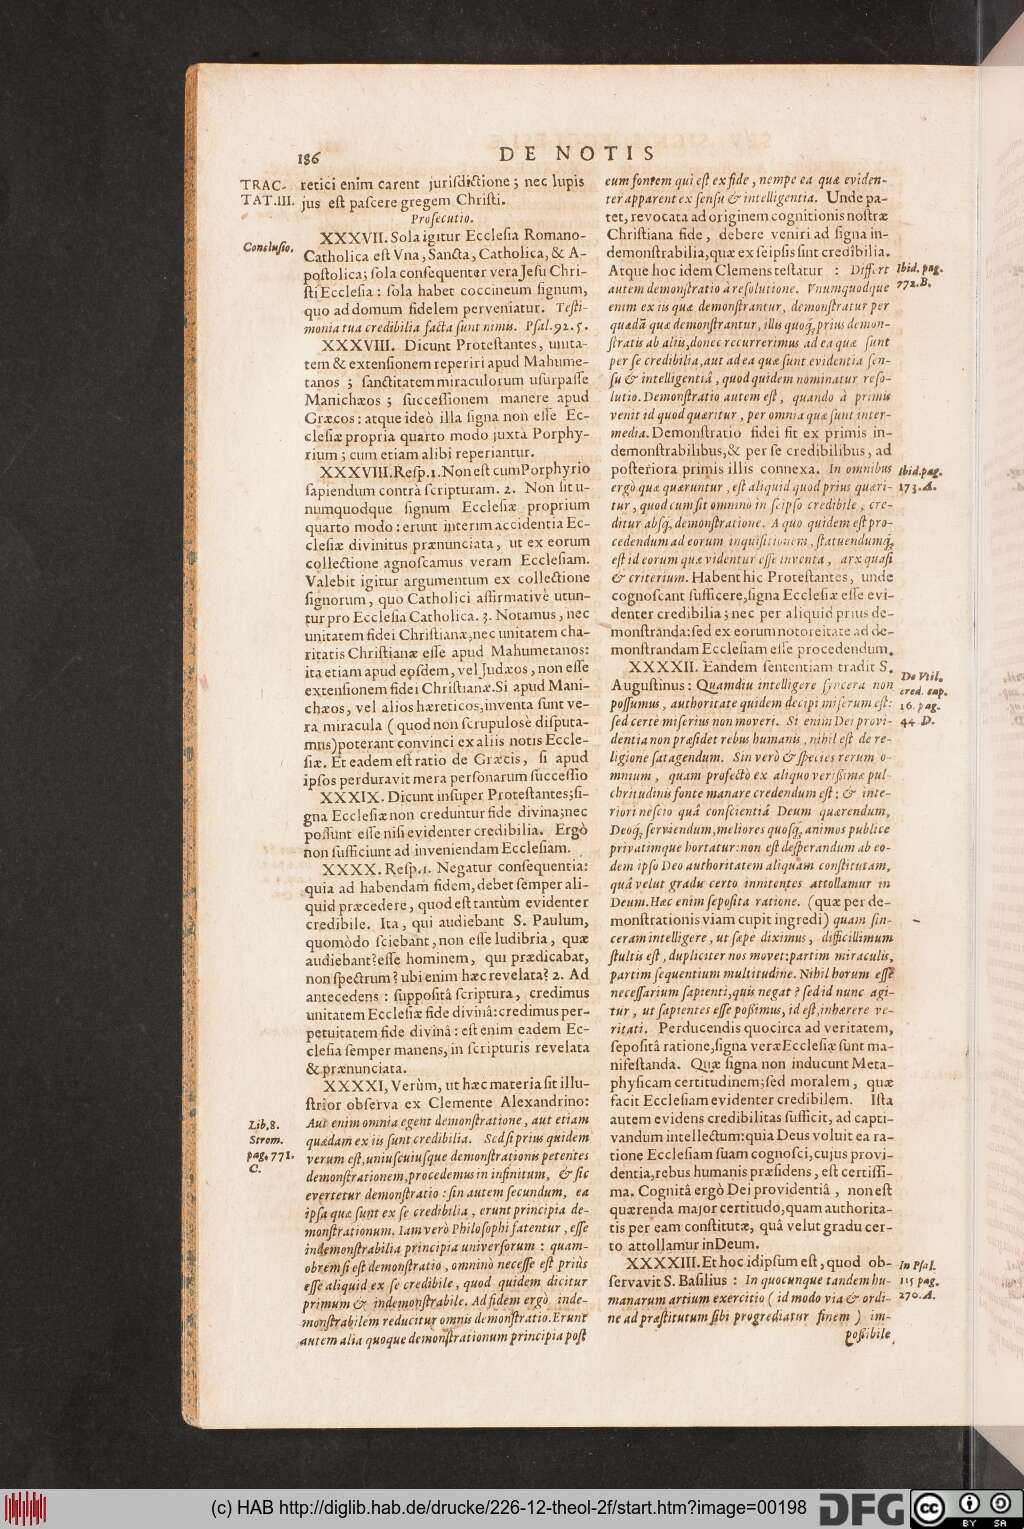 186
DE NOTIS
TRAC-
TAT.III.
retici enim carent jurisdictione; nec lupis
jus est pascere gregem Christi.
Prosecutio.
Conclusio.
XXXVII. Sola igitur Ecclesia Romano-
Catholica est Vna, Sancta, Catholica, & A-
postolica; sola consequenter vera Jesu Chri-
sti Ecclesia: sola habet coccineum signum,
quo ad domum fidelem perveniatur. Testi-
monia tua credibilia facta sunt nimis. Psal.92.5.
XXXVIII. Dicunt Protestantes, unita-
tem & extensionem reperiri apud Mahume-
tanos; sanctitatem miraculorum usurpasse
Manichæos; successionem manere apud
Græcos: atque ideò illa signa non esse Ec-
clesiæ propria quarto modo juxtà Porphy-
rium; cum etiam alibi reperiantur.
XXXVIII. Resp. 1. Non est cum Porphyrio
sapiendum contrà scripturam. 2. Non sit u-
numquodque signum Ecclesiæ proprium
quarto modo: erunt interim accidentia Ec-
clesiæ divinitus prænunciata, ut ex eorum
collectione agnoscamus veram Ecclesiam.
Valebit igitur argumentum ex collectione
signorum, quo Catholici affirmativè utun-
tur pro Ecclesia Catholica. 3. Notamus, nec
unitatem fidei Christianæ, nec unitatem cha-
ritatis Christianæ esse apud Mahumetanos:
ita etiam apud eosdem, vel Judæos, non esse
extensionem fidei Christianæ. Si apud Mani-
chæos, vel alios hæreticos, inventa sunt ve-
ra miracula (quod non scrupulosè disputa-
mus) poterant convinci ex aliis notis Eccle-
siæ. Et eadem est ratio de Græcis, si apud
ipsos perduravit mera personarum successio
XXXIX. Dicunt insuper Protestantes; si-
gna Ecclesiæ non creduntur fide divina; nec
possunt esse nisi evidenter credibilia. Ergò
non sufficiunt ad inveniendam Ecclesiam.
XXXX. Resp. 1. Negatur consequentia:
quia ad habendam fidem, debet semper ali-
quid præcedere, quod est tantùm evidenter
credibile. Ita, qui audiebant S. Paulum,
quomòdo sciebant, non esse ludibria, quæ
audiebant? esse hominem, qui prædicabat,
non spectrum? ubi enim hæc revelata? 2. Ad
antecedens: suppositâ scriptura, credimus
unitatem Ecclesiæ fide divinâ: credimus per-
petuitatem fide divinâ: est enim eadem Ec-
clesia semper manens, in scripturis revelata
& prænunciata.
XXXXI, Verùm, ut hæc materia sit illu-
strior observa ex Clemente Alexandrino:
Lib. 8.
Strom.
pag. 771.
C.
Aut enim omnia egent demonstratione, aut etiam
quædam ex iis sunt credibilia. Sed si prius quidem
verum est, uniuscuiusque demonstrationis petentes
demonstrationem, procedemus in infinitum, & sic
evertetur demonstratio: sin autem secundum, ea
ipsa quæ sunt ex se credibilia, erunt principia de-
monstrationum. Iam verò Philosophi fatentur, esse
indemonstrabilia principia universorum: quam-
obrem si est demonstratio, omnino necesse est priùs
esse aliquid ex se credibile, quod quidem dicitur
primum & indemonstrabile. Ad fidem ergò inde-
monstrabilem reducitur omnis demonstratio. Erunt
autem alia quoque demonstrationum principia post
eum fontem qui est ex fide, nempe ea quæ eviden-
ter apparent ex sensu & intelligentia. Unde pa-
tet, revocata ad originem cognitionis nostræ
Christiana fide, debere veniri ad signa in-
demonstrabilia, quæ ex seipsis sint credibilia.
Atque hoc idem Clemens testatur: Differt
autem demonstratio à resolutione. Vnumquodque
enim ex iis quæ demonstrantur, demonstratur per
quædã quæ demonstrantur, illis quoq;, prius demon-
stratis ab aliis, donec recurrerimus ad ea quæ sunt
per se credibilia, aut ad ea quæ sunt evidentia sen-
su & intelligentiâ, quod quidem nominatur reso-
lutio. Demonstratio autem est, quando à primis
venit id quod quæritur, per omnia quæ sunt inter-
media. Demonstratio fidei fit ex primis in-
demonstrabilibus, & per se credibilibus, ad
posteriora primis illis connexa. In omnibus
ergò quæ quæruntur, est aliquid quod prius quæri-
tur, quod cum sit omnino in seipso credibile, cre-
ditur absq; demonstratione. A quo quidem est pro-
cedendum ad eorum inquisitionem, statuendumq;
est id eorum quæ videntur esse inventa, arx quasi
& criterium. Habent hic Protestantes, unde
cognoscant sufficere, signa Ecclesiæ esse evi-
denter credibilia; nec per aliquid prius de-
monstranda: sed ex eorum notoreitate ad de-
monstrandam Ecclesiam esse procedendum.
Ibid. pag.
772. B.
Ibid. pag.
173. A.
XXXXII. Eandem sententiam tradit S.
Augustinus: Quamdiu intelligere syncera non
possumus, authoritate quidem decipi miserum est:
sed certè miserius non moveri. Si enim Dei provi-
dentia non præsidet rebus humanis, nihil est de re-
ligione satagendum. Sin verò & species rerum o-
mnium, quam profectò ex aliquo verissimæ pul-
chritudinis fonte manare credendum est; & inte-
riori nescio quâ conscientiâ Deum quærendum,
Deoq; serviendum, meliores quosq; animos publice
privatimque hortatur: non est desperandum ab eo-
dem ipso Deo authoritatem aliquam constitutam,
quâ velut gradu certo innitentes attollamur in
Deum. Hæc enim seposita ratione. (quæ per de-
monstrationis viam cupit ingredi) quam sin-
ceram intelligere, ut sæpe diximus, difficillimum
stultis est, dupliciter nos movet: partim miraculis,
partim sequentium multitudine. Nihil horum esse
necessarium sapienti, quis negat? sed id nunc agi-
tur, ut sapientes esse possimus, id est, inhærere ve-
ritati. Perducendis quocirca ad veritatem,
sepositâ ratione, signa veræ Ecclesiæ sunt ma-
nifestanda. Quæ signa non inducunt Meta-
physicam certitudinem; sed moralem, quæ
facit Ecclesiam evidenter credibilem. Ista
autem evidens credibilitas sufficit, ad capti-
vandum intellectum: quia Deus voluit ea ra-
tione Ecclesiam suam cognosci, cujus provi-
dentia, rebus humanis præsidens, est certissi-
ma. Cognitâ ergò Dei providentiâ, non est
quærenda major certitudo, quam authorita-
tis per eam constitutæ, quâ velut gradu cer-
to attollamur in Deum.
De Vtil.
cred. cap.
16. pag.
44 D.
XXXXIII. Et hoc idipsum est, quod ob-
servavit S. Basilius: In quocunque tandem hu-
manarum artium exercitio (id modo via & ordi-
ne ad præstitutum sibi progrediatur finem) im-
possibile
In Psal.
115 pag.
270. A.
(c) HAB http://diglib.hab.de/drucke/226-12-theol-2f/start.htm?image=00198
DFG
CC BY SA